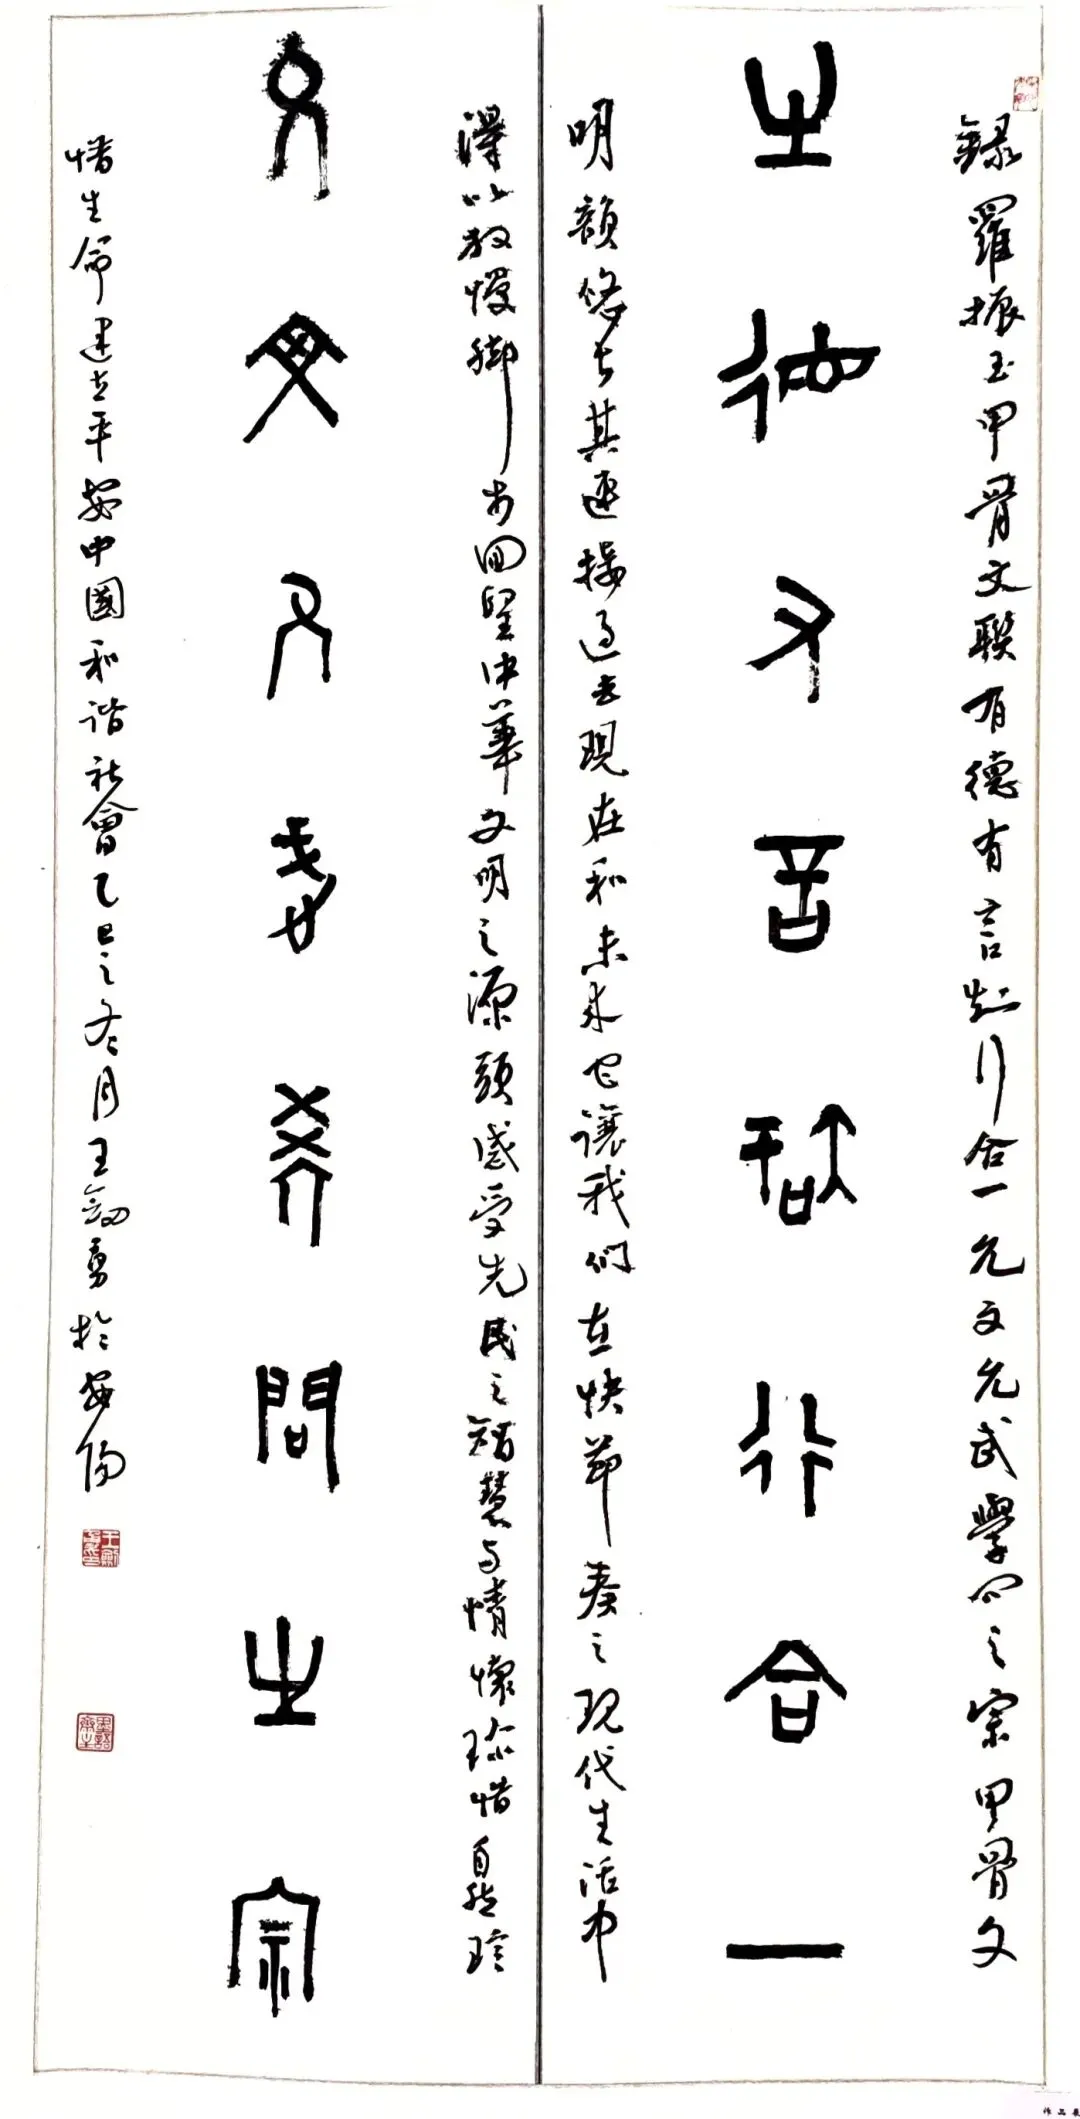 錄羅振玉甲骨文聯有德有言知行合一允文允武學問之宗甲骨文
有德有言知行合一
明韻悠長其連接過去現在和未來它讓我們在快節奏之現代生活中
得以放慢腳步回望中華文明之源頭感受先民之智慧與情懷珍惜自然珍
允文允武學問之宗
惜生命建立平安中國和諧社會乙巳之冬月王劍勇於安陽
作品展